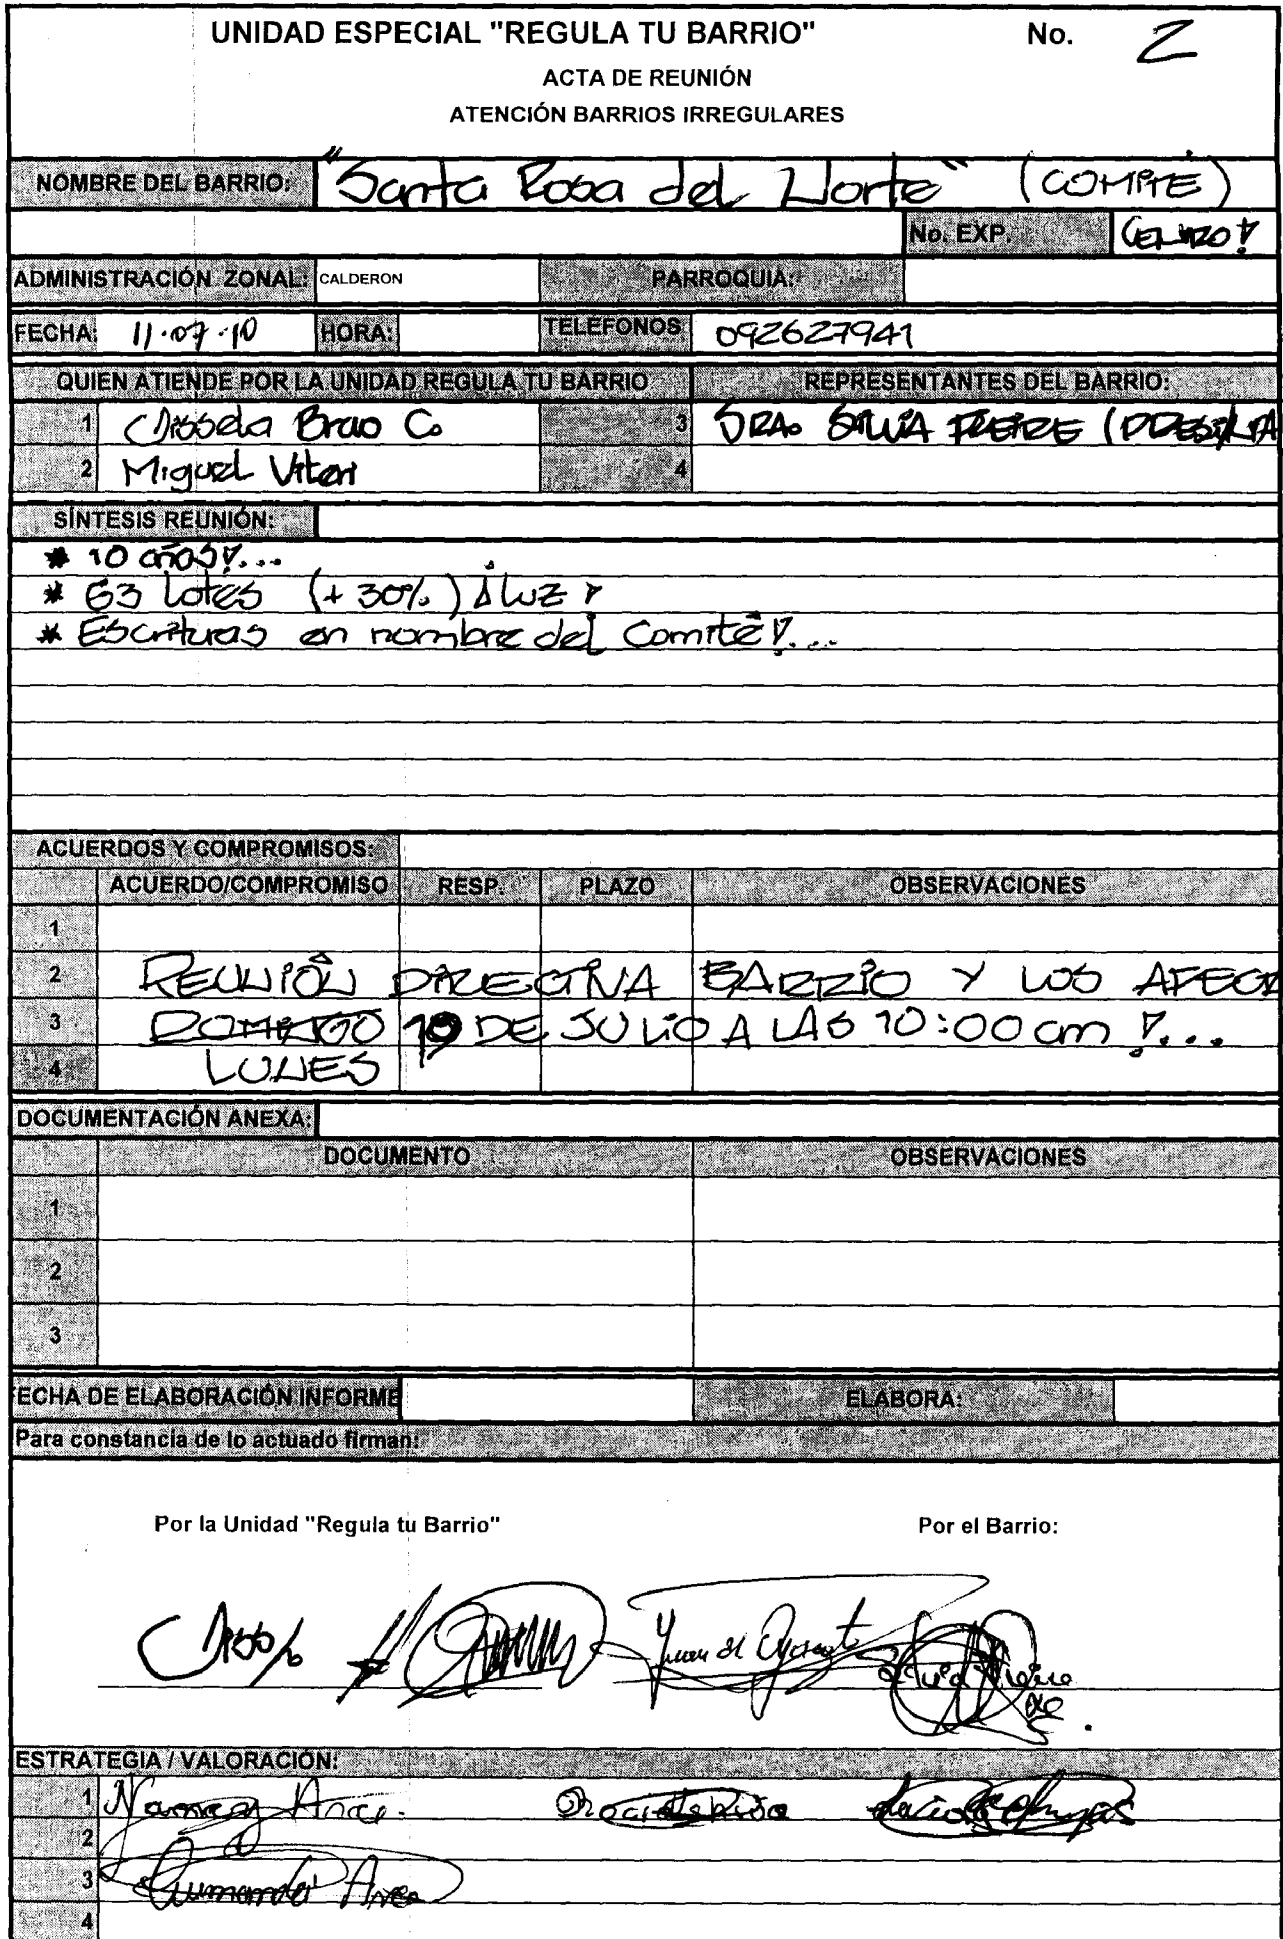 UNIDAD ESPECIAL "REGULA TU BARRIO" No. 2
ACTA DE REUNIÓN
ATENCIÓN BARRIOS IRREGULARES
NOMBRE DEL BARRIO: "Santa Rosa del Norte" (COMITE)
No. EXP.
ADMINISTRACIÓN ZONAL: CALDERON PARROQUIA:
FECHA: 11.07.10 HORA: TELEFONOS 092627941
QUIEN ATIENDE POR LA UNIDAD REGULA TU BARRIO REPRESENTANTES DEL BARRIO:
1 Bravo C. 3 SRA. SILVIA FREIRE
2 Miguel Viteri 4
SÍNTESIS REUNIÓN:
* 10 años!...
* 63 Lotes (+ 30%) luz
* Escrituras en nombre del Comité!...
ACUERDOS Y COMPROMISOS:
ACUERDO/COMPROMISO RESP. PLAZO OBSERVACIONES
1
2 REUNIÓN DIRECTIVA BARRIO Y LOS AFECT
3 DOMINGO 19 DE JULIO A LAS 10:00 am !...
4 LUNES
DOCUMENTACIÓN ANEXA:
DOCUMENTO OBSERVACIONES
1
2
3
ECHA DE ELABORACIÓN INFORME ELABORA:
Para constancia de lo actuado firman:
Por la Unidad "Regula tu Barrio" Por el Barrio:
ESTRATEGIA / VALORACIÓN:
1 Arce.
2
3 Arce
4